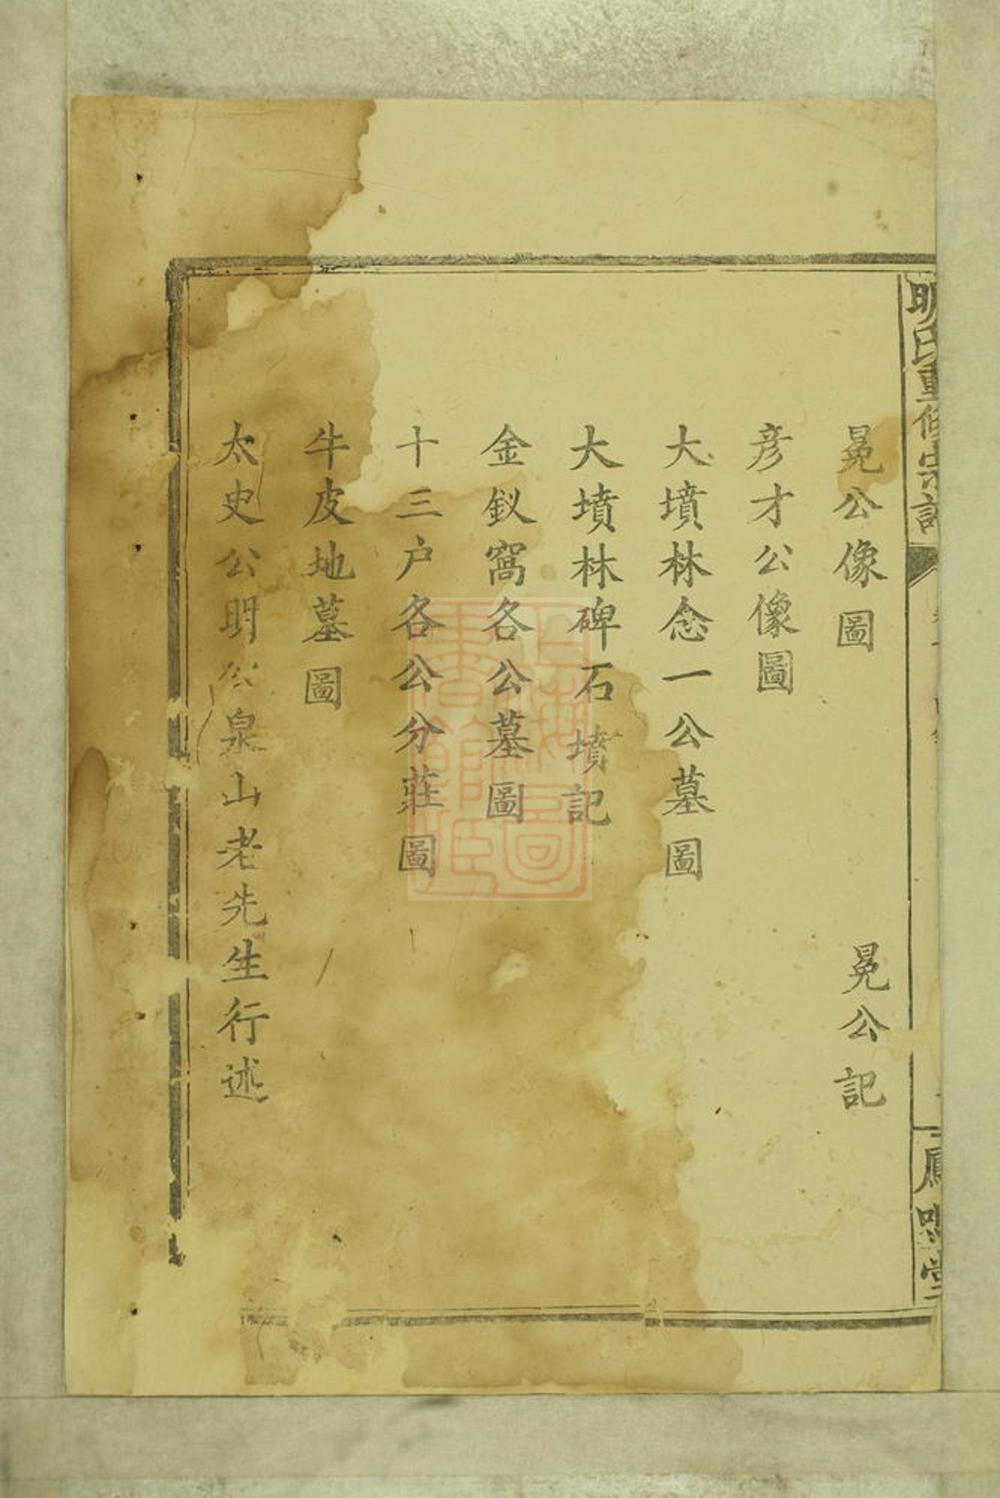 明氏重修宗譜
鳳鳴堂
冕公像圖 冕公記
彦才公像圖
大墳林念一公墓圖
大墳林碑石墳記
金釵窩各公墓圖
十三户各公分莊圖
牛皮地墓圖
太史公明公泉山老先生行述
上海圖書館藏